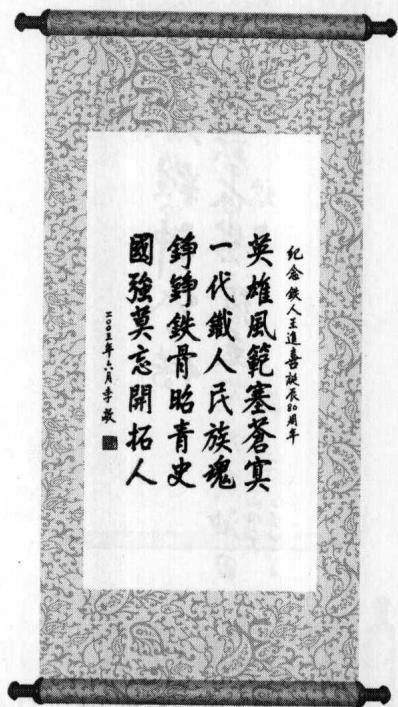 紀念鉄人王進喜誕辰80周年
英雄風範塞蒼㝠
一代鐵人民族魂
錚錚鉄骨昭青史
國強莫忘開拓人
二〇〇三年六月李敏